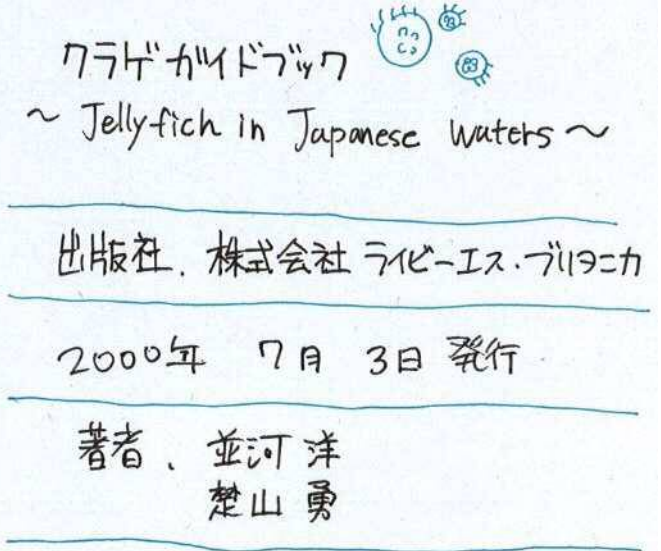 クラゲガイドブック
～ Jellyfich in Japanese Waters ～
出版社、株式会社 ライビーエス・ブリタニカ
2000年 7月 3日 発行
著者、並河 洋
楚山 勇